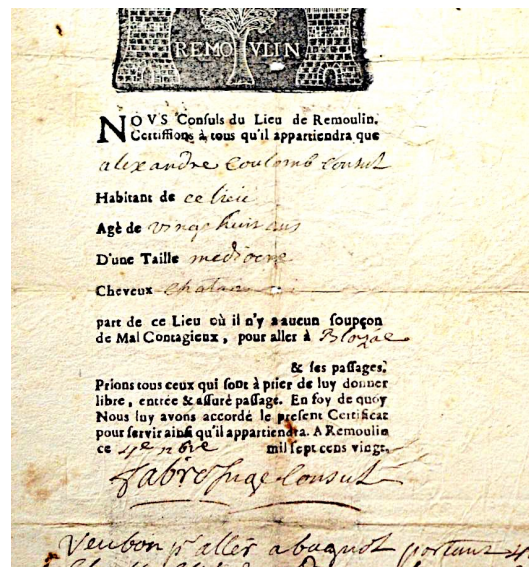 REMOVLIN
NOVS Consuls du Lieu de Remoulin.
Certiffions à tous qu'il appartiendra que
alexandre coulomb consul
Habitant de ce lieu
Agé de vingt huit ans
D'une Taille mediocre
Cheveux chatan
part de ce Lieu où il n'y a aucun soupçon
de Mal Contagieux, pour aller à
& ses passages.
Prions tous ceux qui sont à prier de luy donner
libre, entrée & assuré passage. En foy de quoy
Nous luy avons accordé le present Certificat
pour servir ainsi qu'il appartiendra. A Remoulin
ce 4e nbre mil sept cens vingt.
fabre juge consul
Veu bon pr aller a bagnol portant